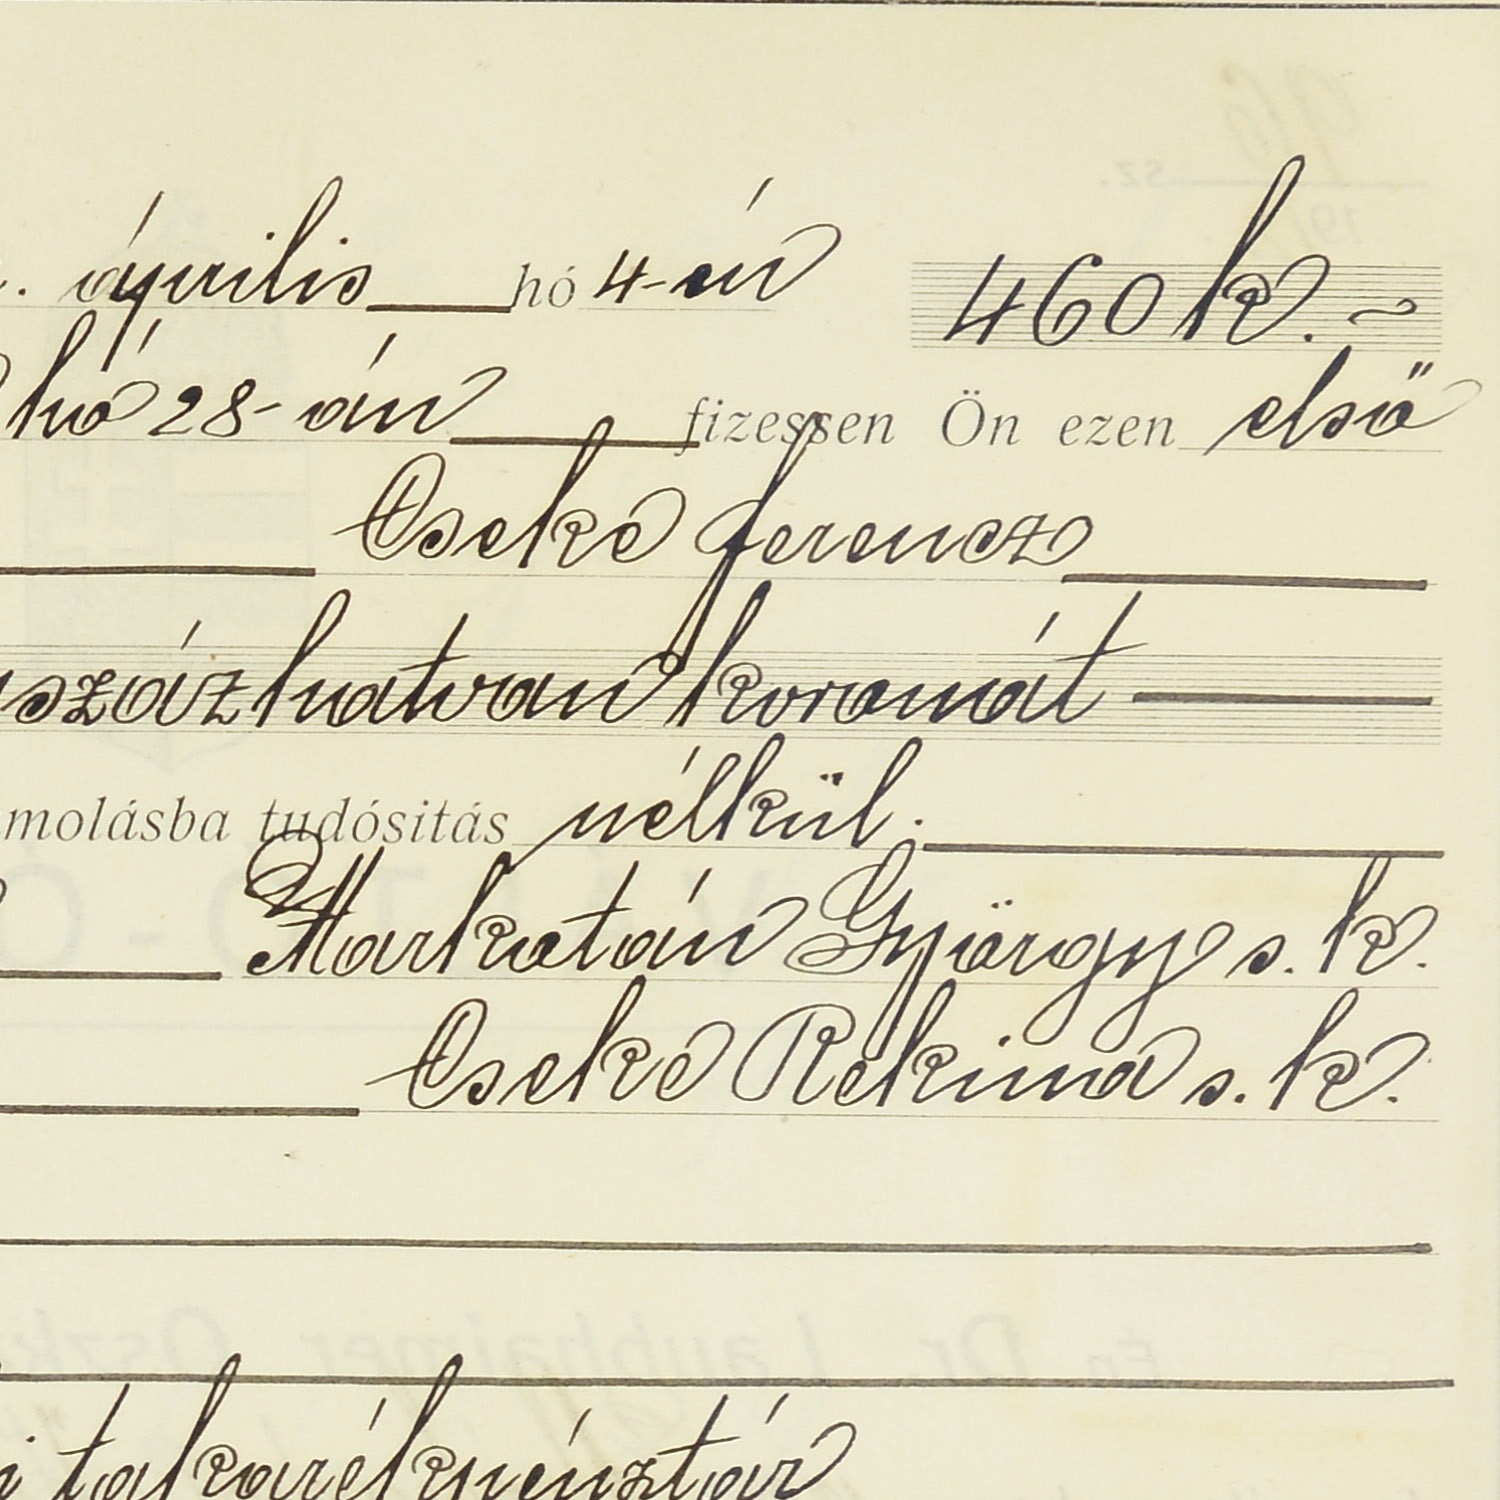 április hó 4-én 460 k.
hó 28-án fizessen Ön ezen első
Cseke Ferencz
százhatvan koronát
molásba tudósitás nélkül.
Markatán György s. k.
Cseke Rekina s. k.
i takarékpénztár